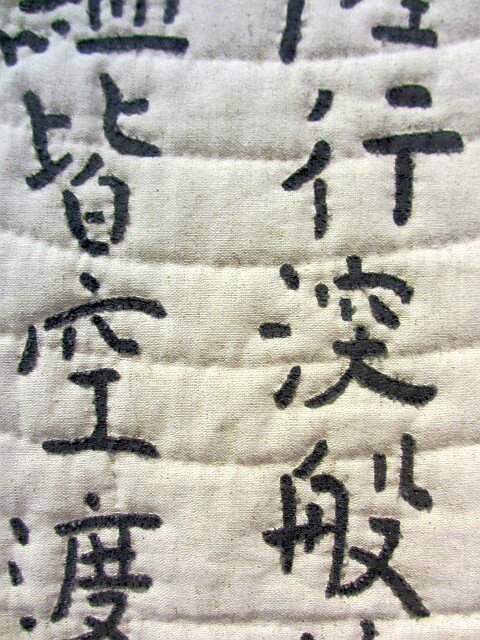 行深般
皆空渡